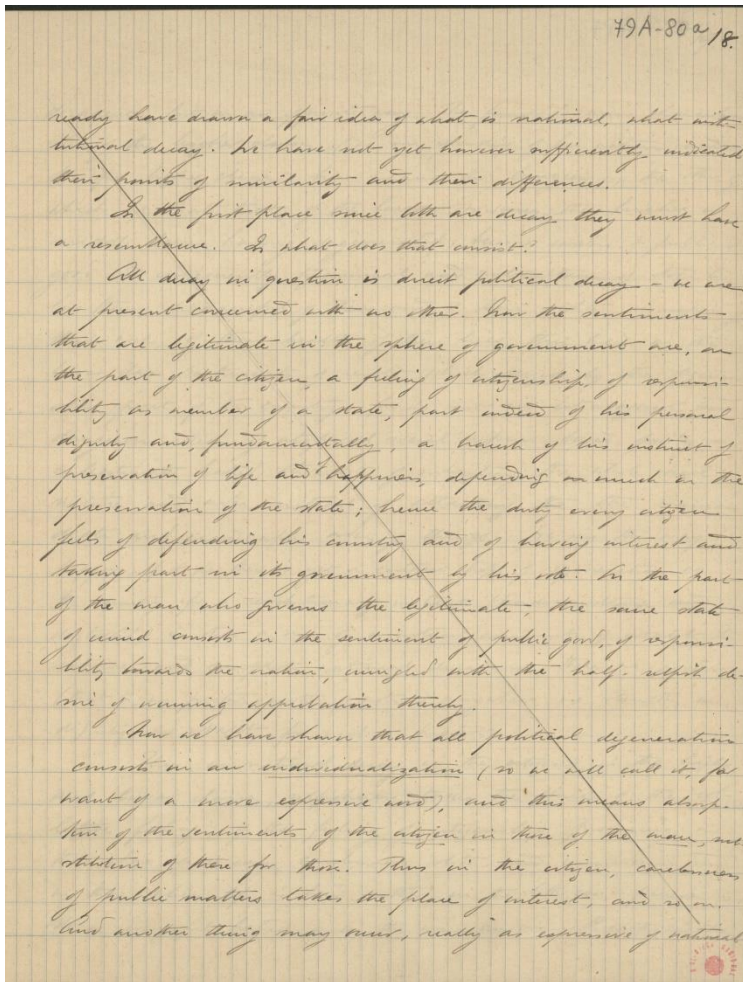 79A-80a 18.
ready have drawn a fair idea of what is national, what insti-
tutional decay. We have not yet however sufficiently indicated
their points of similarity and their differences.
In the first place since both are decay they must have
a resemblance. In what does that consist?
All decay in question is direct political decay - we are
at present concerned with no other. Now the sentiments
that are legitimate in the sphere of government are, on
the part of the citizen, a feeling of citizenship, of responsi-
bility as member of a state, part indeed of his personal
dignity and, fundamentally, a branch of his instinct of
preservation of life and of happiness, depending so much on the
preservation of the state; hence the duty every citizen
feels of defending his country and of having interest and
taking part in its government by his vote. On the part
of the man who governs the legitimate, the same state
of mind consists in the sentiment of public good, of responsi-
bility towards the nation, mingled with the half-selfish de-
sire of winning approbation thereby.
Now we have shown that all political degeneration
consists in an individualization (so we will call it, for
want of a more expressive word), and this means absorp-
tion of the sentiments of the citizen in those of the man, sub-
stitution of these for those. Thus in the citizen, carelessness
of public matters takes the place of interest, and so on.
And another thing may occur, really as expressive of national